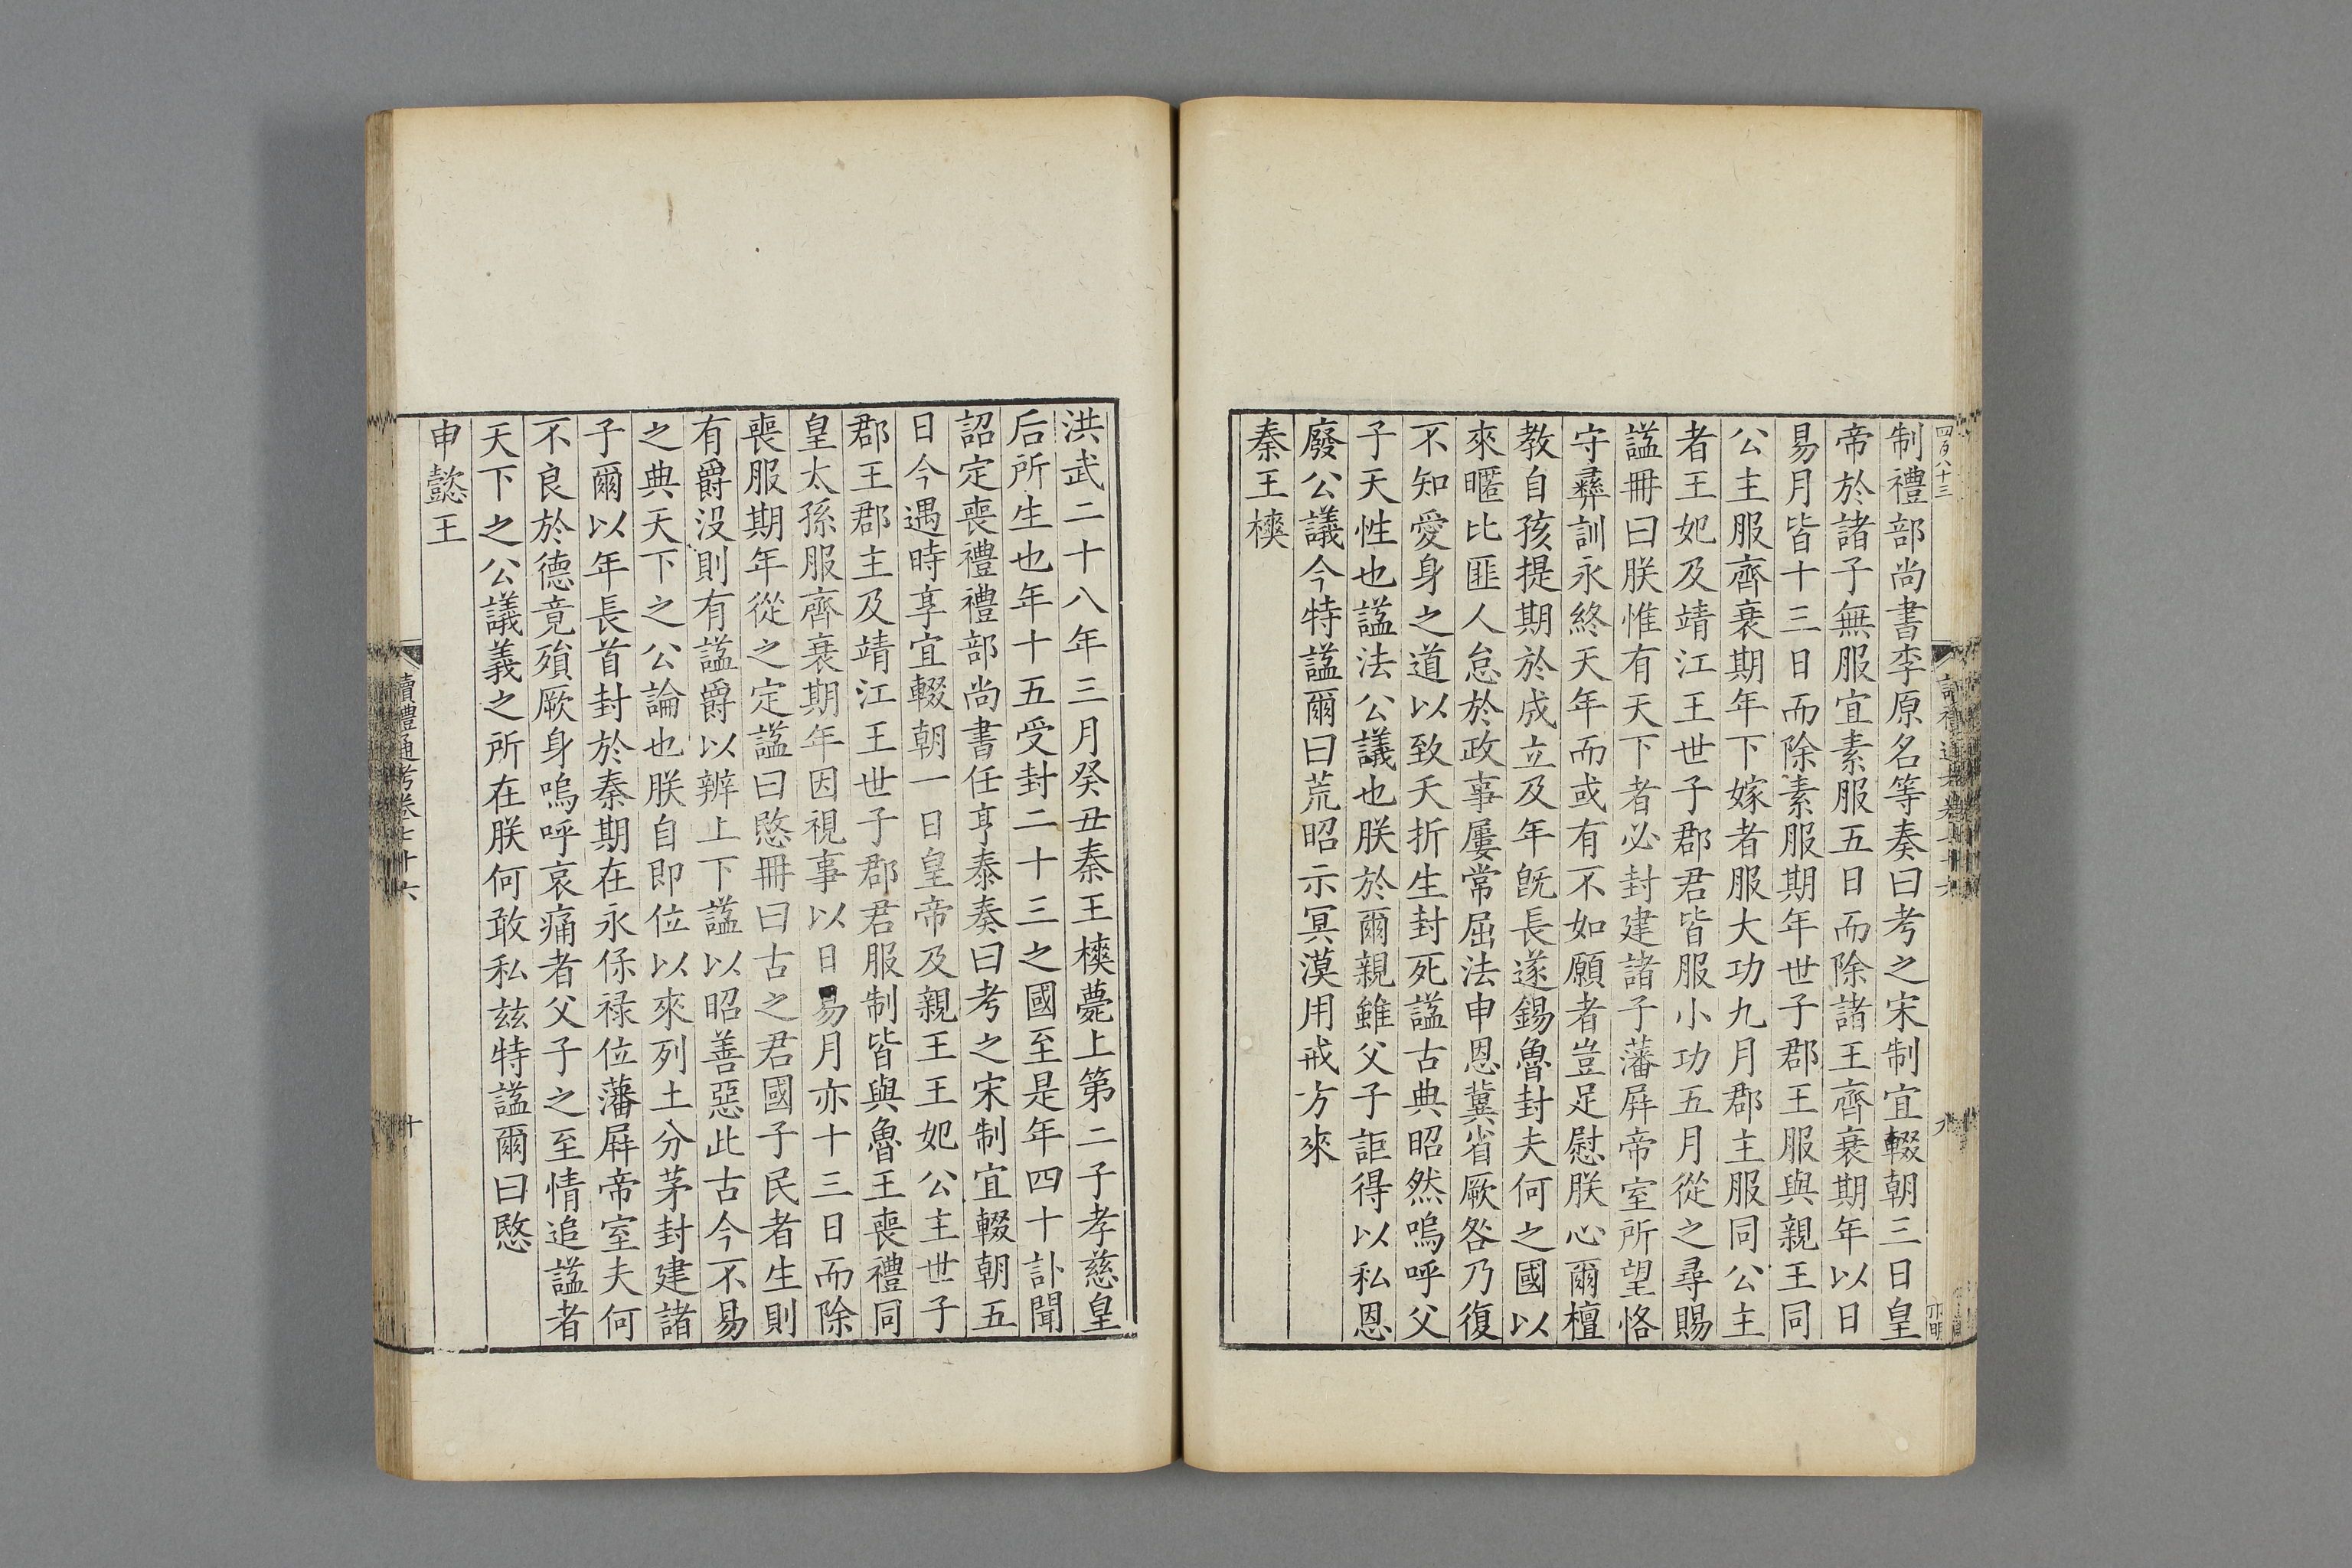 四百八十三
制禮部尚書李原名等奏曰考之宋制宜輟朝三日皇
帝於諸子無服宜素服五日而除諸王齊衰期年以日
易月皆十三日而除素服期年世子郡王服與親王同
公主服齊衰期年下嫁者服大功九月郡主服同公主
者王妃及靖江王世子郡君皆服小功五月從之尋賜
謚冊曰朕惟有天下者必封建諸子藩屏帝室所望恪
守彝訓永終天年而或有不如願者豈足慰朕心爾檀
教自孩提期於成立及年旣長遂錫魯封夫何之國以
來暱比匪人怠於政事屢常屈法申恩冀省厥咎乃復
不知愛身之道以致夭折生封死謚古典昭然嗚呼父
子天性也謚法公議也朕於爾親雖父子詎得以私恩
廢公議今特謚爾曰荒昭示冥漠用戒方來
秦王樉
洪武二十八年三月癸丑秦王樉薨上第二子孝慈皇
后所生也年十五受封二十三之國至是年四十訃聞
詔定喪禮禮部尚書任亨泰奏曰考之宋制宜輟朝五
日今遇時享宜輟朝一日皇帝及親王王妃公主世子
郡王郡主及靖江王世子郡君服制皆與魯王喪禮同
皇太孫服齊衰期年因視事以日易月亦十三日而除
喪服期年從之定謚曰愍冊曰古之君國子民者生則
有爵没則有謚爵以辨上下謚以昭善惡此古今不易
之典天下之公論也朕自即位以來列土分茅封建諸
子爾以年長首封於秦期在永保禄位藩屏帝室夫何
不良於德竟殞厥身嗚呼哀痛者父子之至情追謚者
天下之公議義之所在朕何敢私兹特謚爾曰愍
申懿王
讀禮通考卷七十六
十